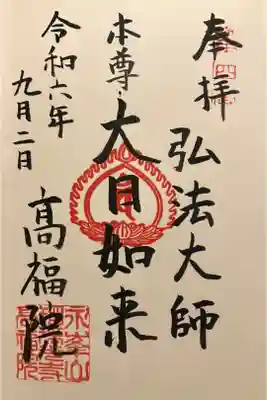 奉拝
弘法大師
本尊
大日如来
令和六年
九月二日
高福院